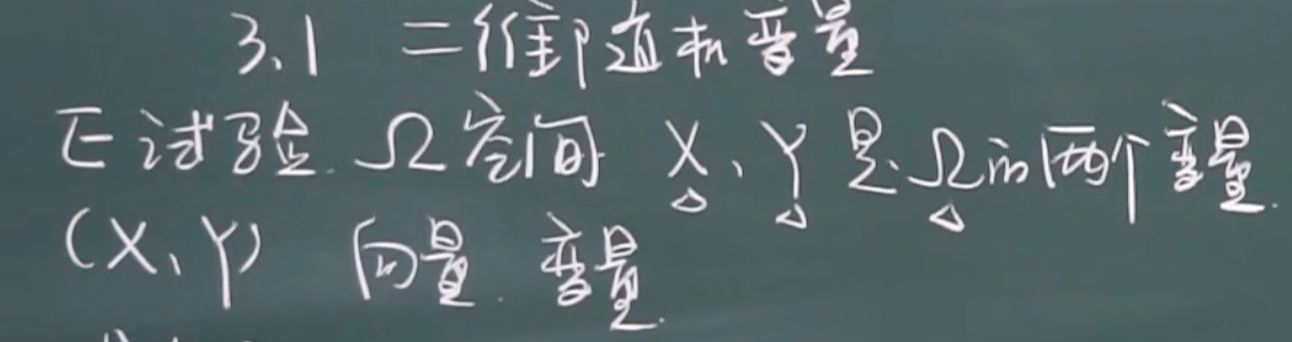 3.1 二维随机变量
E试验. Ω空间 X、Y是Ω的两个变量.
(X、Y) 向量. 变量.